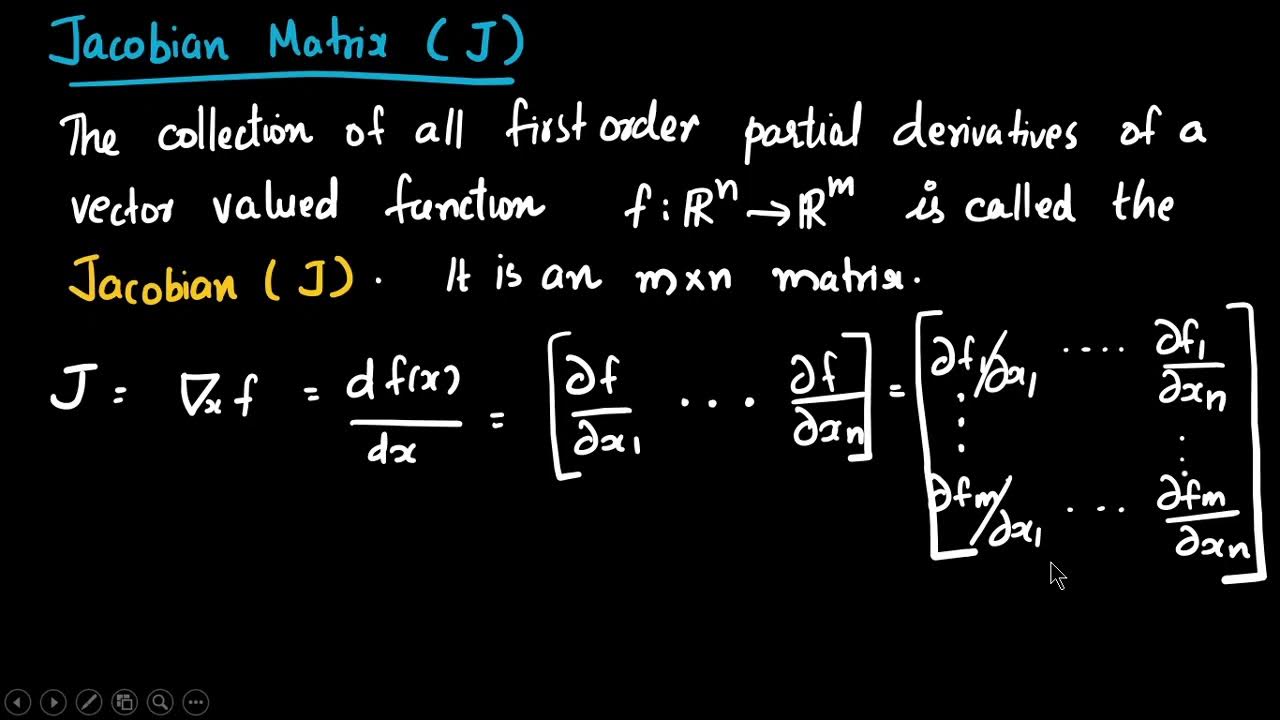 Jacobian Matrix (J)
The collection of all first order partial derivatives of a
vector valued function f : ℝⁿ → ℝᵐ is called the
Jacobian (J). It is an m×n matrix.
J = ∇ₓf = df(x)/dx = [∂f/∂x₁ ... ∂f/∂xₙ] = [∂f₁/∂x₁ .... ∂f₁/∂xₙ ⋮ ⋮ ∂fₘ/∂x₁ ... ∂fₘ/∂xₙ]